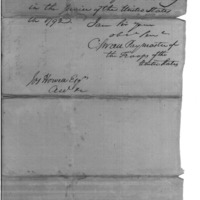 in the Service of the United States
for 1792. I am Sir Your
Obt. Servt.
C Swan Paymaster of
the Troops of the
United States
Jos Howell Esqr.